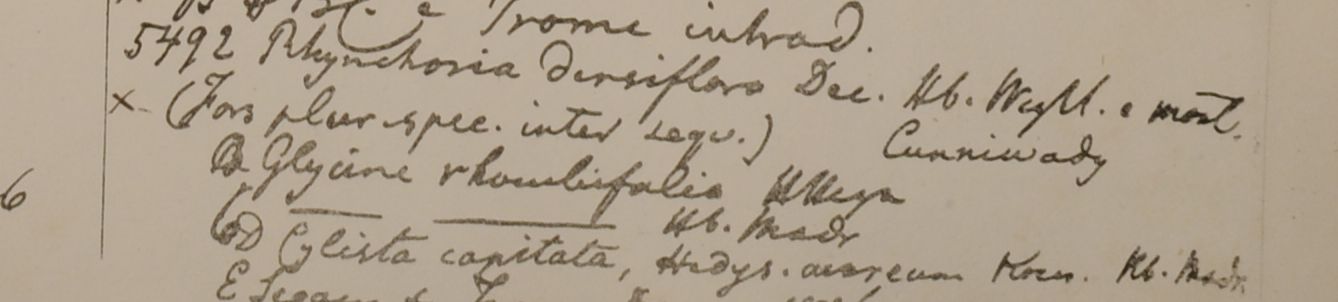 & Trome introd.
5492 Rhynchosia densiflora Dec. Hb. Wight. e mont.
× (Fors plur. spec. inter sequ.) Cunniwady
B Glycine rhombifolia HHeyn
Hb. Madr
D Cylista capitata, Hedys. aureum Koen. Hb. Madr.
E
6